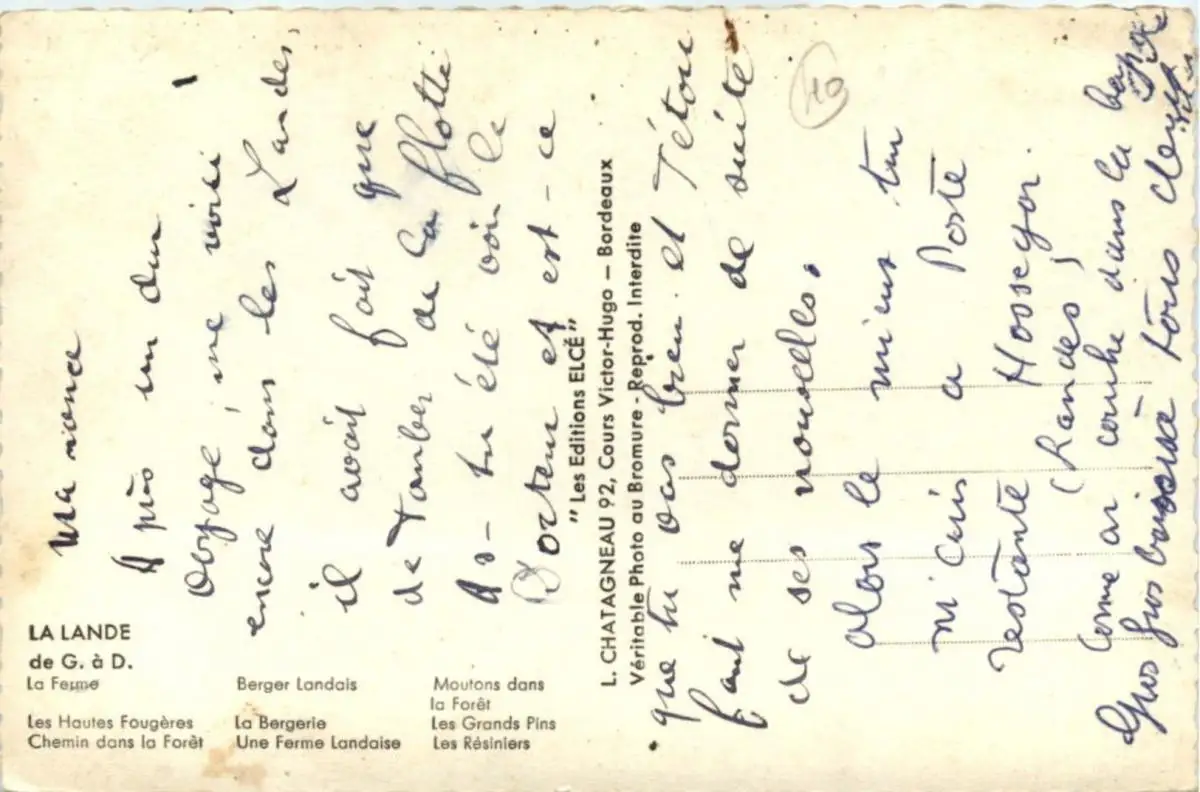 LA LANDE
de G. à D.
La Ferme
Berger Landais
Moutons dans
la Forêt
Les Hautes Fougères
La Bergerie
Les Grands Pins
Chemin dans la Forêt
Une Ferme Landaise
Les Résiniers
" Les Editions ELCÉ "
L. CHATAGNEAU 92, Cours Victor-Hugo — Bordeaux
Véritable Photo au Bromure - Reprod. Interdite
Ma
Après un dur
voyage, me voici
encore dans les Landes,
il avait fait que
de tomber de la flotte
As-tu été voir le
Docteur et est-ce
que tu vas bien. et
faut me donner de suite
de ses nouvelles.
alors le mieux tu
m'écris a Poste
restante Hossegor.
(Landes)
comme on couche dans la
Gros Gros baisers à tous